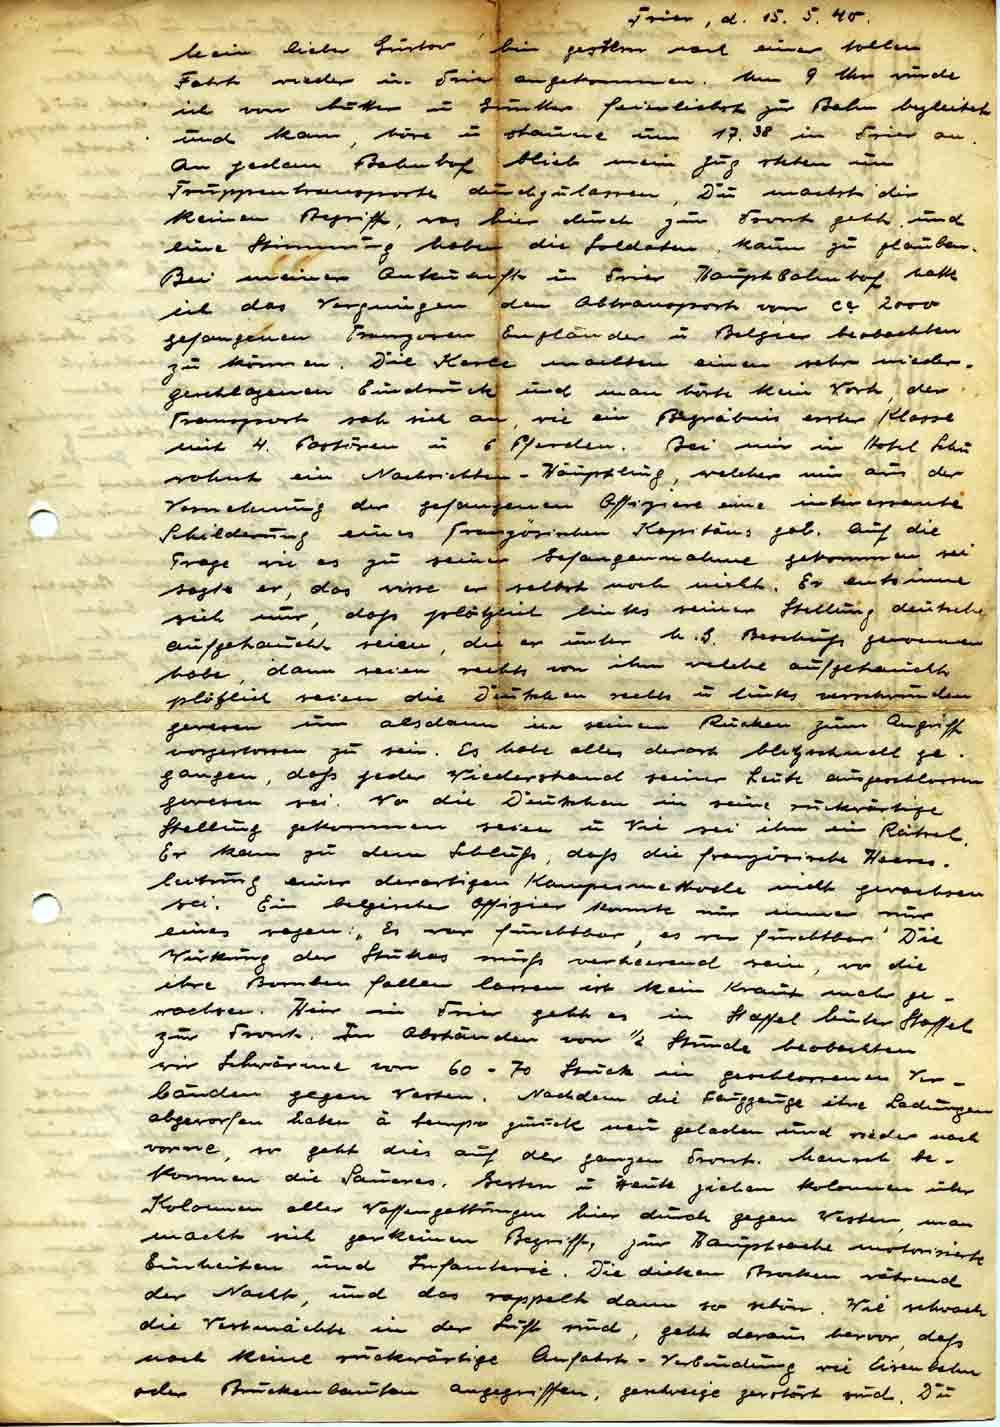 Trier, d. 15. 5. 40.
Mein lieber Gustav, bin gestern nach einer tollen
Fahrt wieder in Trier angekommen. Um 9 Uhr wurde
ich von Mutter u Günther feierlichst zur Bahn begleitet
und kam, höre u staune um 17.38 in Trier an.
An jedem Bahnhof blieb mein Zug stehen um
Truppentransporte durchzulassen, Du machst dir
keinen Begriff, was hier durch zur Front geht und
eine Stimmung haben die Soldaten kaum zu glauben.
Bei meiner Ankunft in Trier Hauptbahnhof hatte
ich das Vergnügen den Abtransport von ca 2000
gefangenen Franzosen Engländer u Belgier beobachten
zu können. Die Kerle machten einen sehr nieder-
geschlagenen Eindruck und man hörte kein Wort, der
Transport sah sich an, wie ein Begräbnis erster Klasse
mit 4. Pastören u 6 Pferden. Bei mir in Hotel
wohnt ein Nachrichten-Häuptling, welcher mir aus der
Vernehmung der gefangenen Offiziere eine interessante
Schilderung eines französischen Kapitäns gab. Auf die
Frage wie es zu seiner Gefangennahme gekommen sei
sagte er, das wisse er selbst noch nicht. Er entsinne
sich nur, daß plötzlich links seiner Stellung deutsche
aufgetaucht seien, die er unter M.G. Beschuß genommen
habe, dann seien rechts von ihm welche aufgetaucht
plötzlich seien die Deutschen rechts u links verschwunden
gewesen um alsdann in seinem Rücken zum Angriff
vorgestossen zu sein. Es habe alles derart blitzschnell ge-
gangen, daß jeder Wiederstand seiner Leute ausgeschlossen
gewesen sei. Wo die Deutschen in seine rückwärtige
Stellung gekommen seien u Wie sei ihm ein Rätsel.
Er kam zu dem Schluß, daß die französische Heeres-
leitung einer derartigen Kampesmethode nicht gewachsen
sei. Ein belgischer Offizier konnte nur immer nur
eines sagen: „Es war furchtbar, es war furchtbar" Die
Wirkung der Stukas muß verheerend sein, wo die
ihre Bomben fallen lassen ist kein Kraut mehr ge-
wachsen. Hier in Trier geht es in Staffel hinter Staffel
zur Front. In Abständen von 1/2 Stunde beobachten
wir Schwärme von 60-70 Stück in geschlossenen Ver-
bänden gegen Westen. Nachdem die Flugzeuge ihre Ladungen
abgeworfen haben à tempo zurück neu geladen und wieder nach
vorne, so geht dies auf der ganzen Front. Mensch be-
kommen die Saueres. Gestern u Heute ziehen Kolonnen über
Kolonnen aller Waffengattungen hier durch gegen Westen, man
macht sich garkeinen Begriff, zur Hauptsache motorisierte
Einheiten und Infanterie. Die dicken Brocken während
der Nacht, und das rappelt dann so schön. Wie schwach
die Westmächte in der Luft sind, geht daraus hervor, daß
noch keine rückwärtige Anfahrts-Verbindung wie Eisenbahn
oder Brückenbauten angegriffen, geschweige zerstört sind. Du